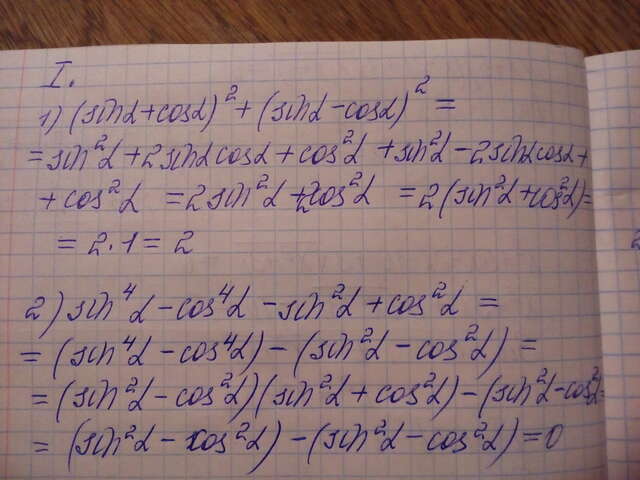 I.
1) (sinα+cosα)² + (sinα-cosα)² =
= sin²α + 2sinα cosα + cos²α + sin²α - 2sinα cosα +
+ cos²α = 2sin²α + 2cos²α = 2(sin²α + cos²α) =
= 2 · 1 = 2
2) sin⁴α - cos⁴α - sin²α + cos²α =
= (sin⁴α - cos⁴α) - (sin²α - cos²α) =
= (sin²α - cos²α)(sin²α + cos²α) - (sin²α - cos²α) =
= (sin²α - cos²α) - (sin²α - cos²α) = 0